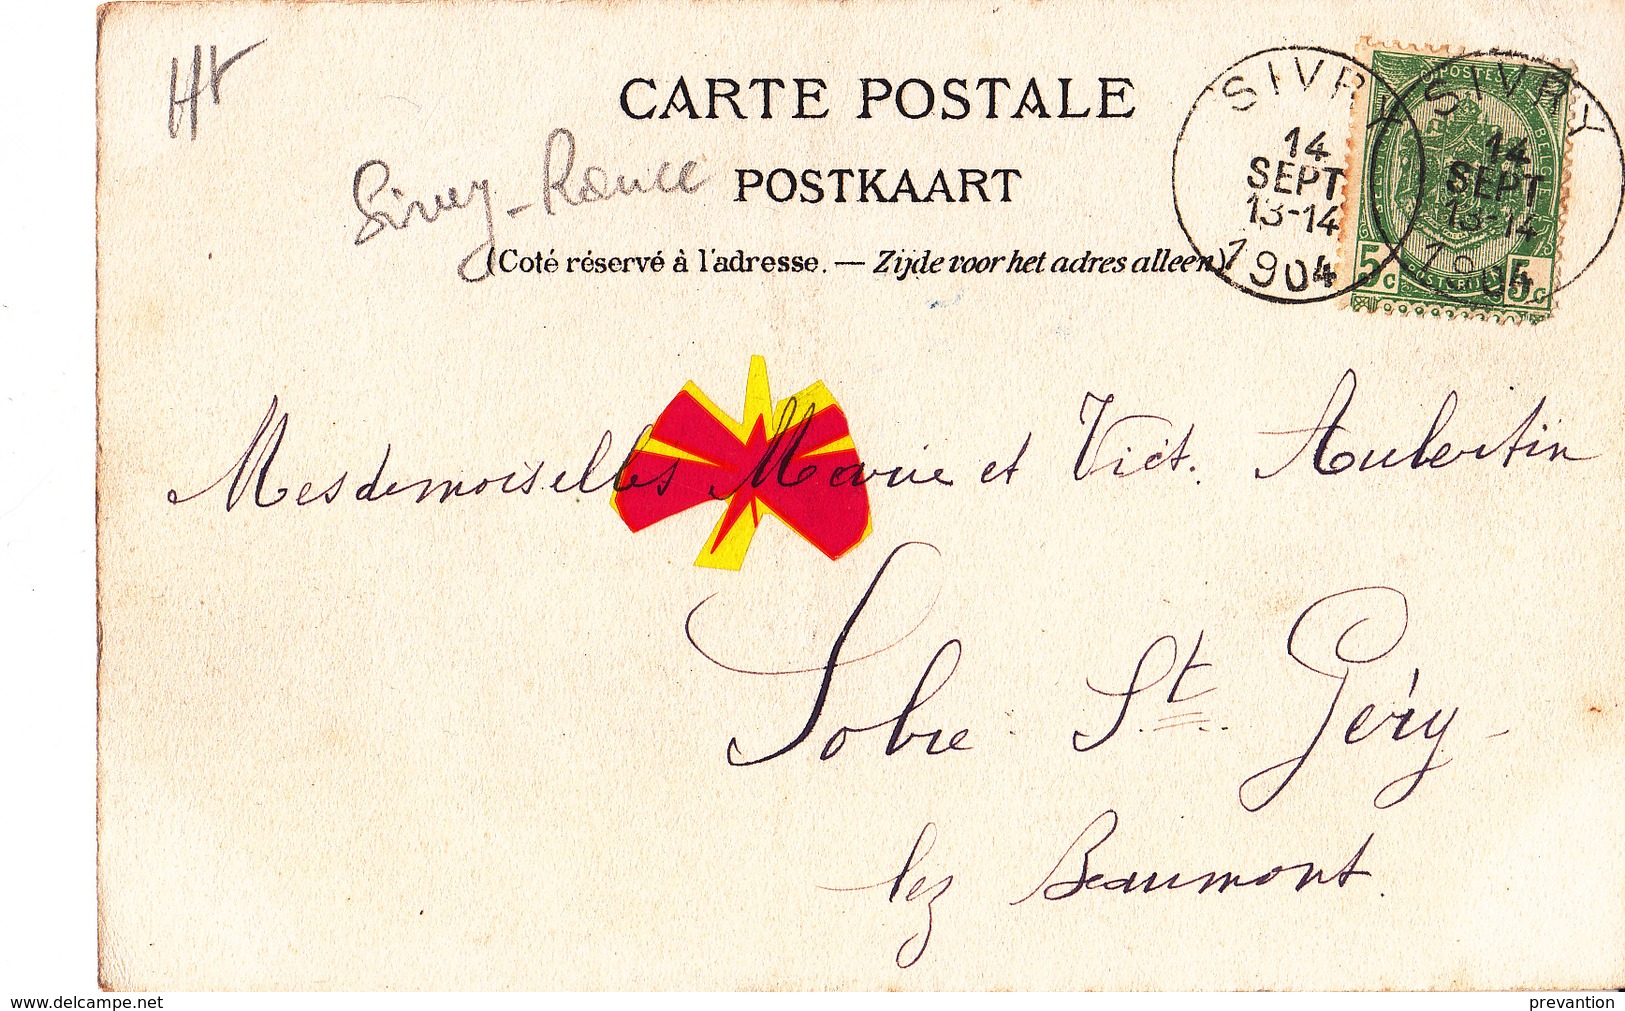 Ht
CARTE POSTALE
Sivry-Rance
POSTKAART
(Coté réservé à l'adresse. — Zijde voor het adres alleen)
SIVRY
14
SEPT
13-14
1904
SIVRY
14
SEPT
13-14
1904
POSTES
BELGE
5c 5c
Mesdemoiselles Marie et Vict. Aubertin
Solre St. Géry
lez Beaumont.
www.delcampe.net
prevantion